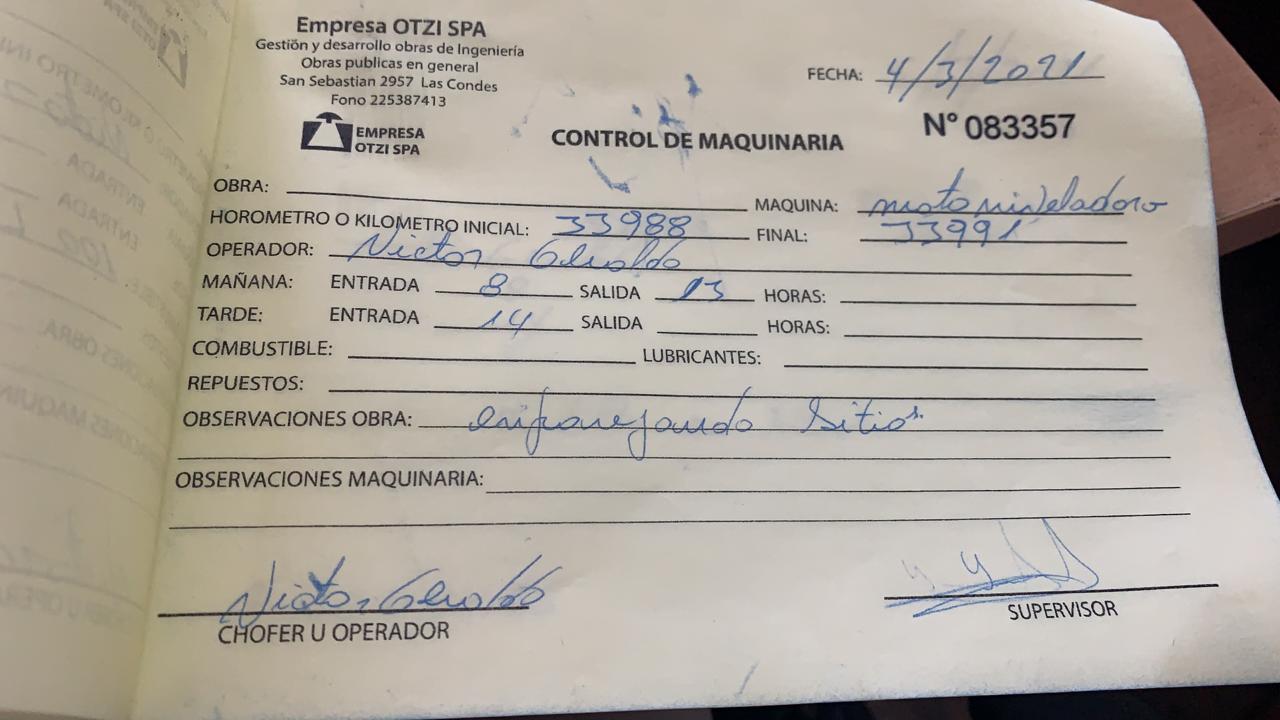 Empresa OTZI SPA
Gestión y desarrollo obras de Ingeniería
Obras publicas en general
San Sebastian 2957 Las Condes
Fono 225387413
EMPRESA
OTZI SPA
FECHA: 4/3/2021
CONTROL DE MAQUINARIA
N° 083357
OBRA: MAQUINA: motoniveladora
HOROMETRO O KILOMETRO INICIAL: 33988 FINAL: 33991
OPERADOR: Victor
MAÑANA: ENTRADA 8 SALIDA 13 HORAS:
TARDE: ENTRADA 14 SALIDA HORAS:
COMBUSTIBLE: LUBRICANTES:
REPUESTOS:
OBSERVACIONES OBRA: emparejando Sitios
OBSERVACIONES MAQUINARIA:
Victor
CHOFER U OPERADOR
SUPERVISOR